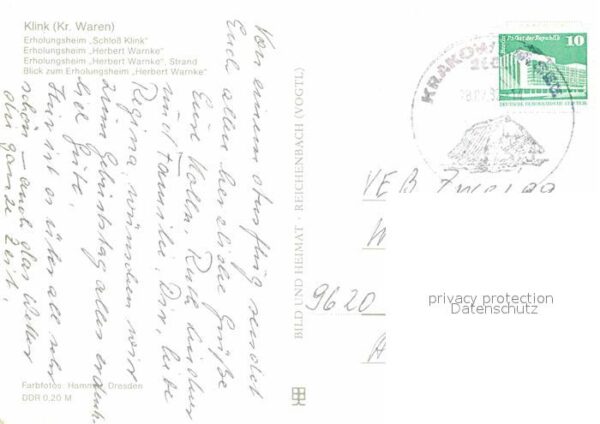 Klink (Kr. Waren)
Erholungsheim „Schloß Klink"
Erholungsheim „Herbert Warnke"
Erholungsheim „Herbert Warnke", Strand
Blick zum Erholungsheim „Herbert Warnke"
Von einem Ausflug sendet
Euch allen herzliche Grüße
Eure Kolln. Ruth
und Familie. Dir, liebe
Regina, wünschen wir
zum Geburtstag alles erdenk-
lich Gute.
Hier ist es überall sehr
schön – auch das Wetter
die ganze Zeit.
Farbfotos: Hammer, Dresden
DDR 0,20 M
BILD UND HEIMAT · REICHENBACH (VOGTL)
KRAKOW
Berlin, Palast der Republik
10
DEUTSCHE DEMOKRATISCHE REPUBLIK
VEB
9620
privacy protection
Datenschutz